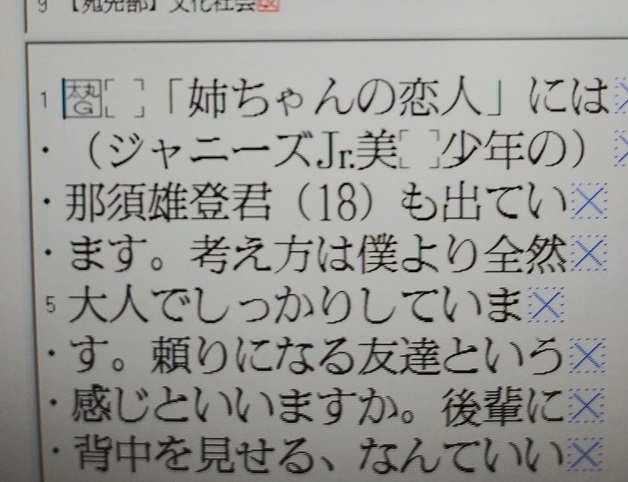 9 【宛先部】文化社会図
1 太丸G[ ]「姉ちゃんの恋人」には
・（ジャニーズJr.美[ ]少年の）
・那須雄登君（18）も出てい
・ます。考え方は僕より全然
5 大人でしっかりしていま
・す。頼りになる友達という
・感じといいますか。後輩に
・背中を見せる、なんていい